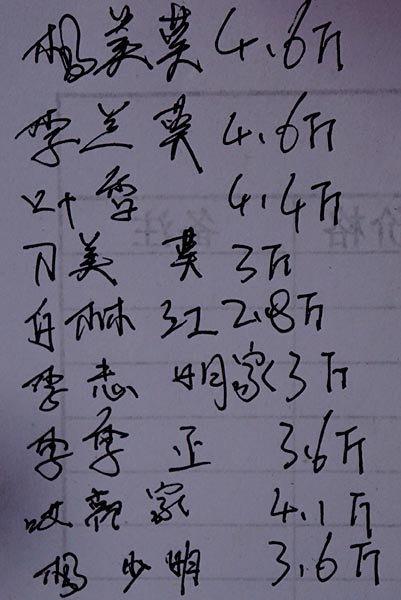 杨美英 4.6斤
李兰英 4.6斤
叶 4.4斤
刀美英 3斤
红 2.8斤
李志明家 3斤
李 正 3.6斤
家 4.1斤
杨少明 3.6斤
价格 备注